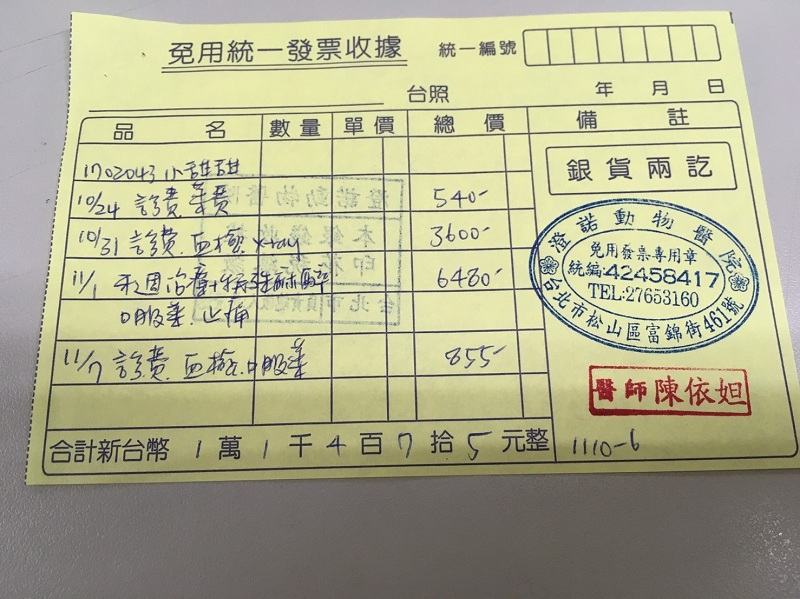 免用統一發票收據
統一編號
台照 年 月 日
品 名 數量 單價 總 價 備 註
1702043 小甜甜
10/24 診費.藥費 540-
10/31 診費.血檢 x-ray 3600-
11/1 牙周治療+特殊麻醉 6480-
口服藥.止痛
11/7 診費.血檢.口服藥 855-
合計新台幣 1 萬 1 千 4 百 7 拾 5 元整
銀貨兩訖
澄諾動物醫院
免用發票專用章
統編:42458417
TEL:27653160
台北市松山區富錦街461號
醫師 陳依妲
1110-6